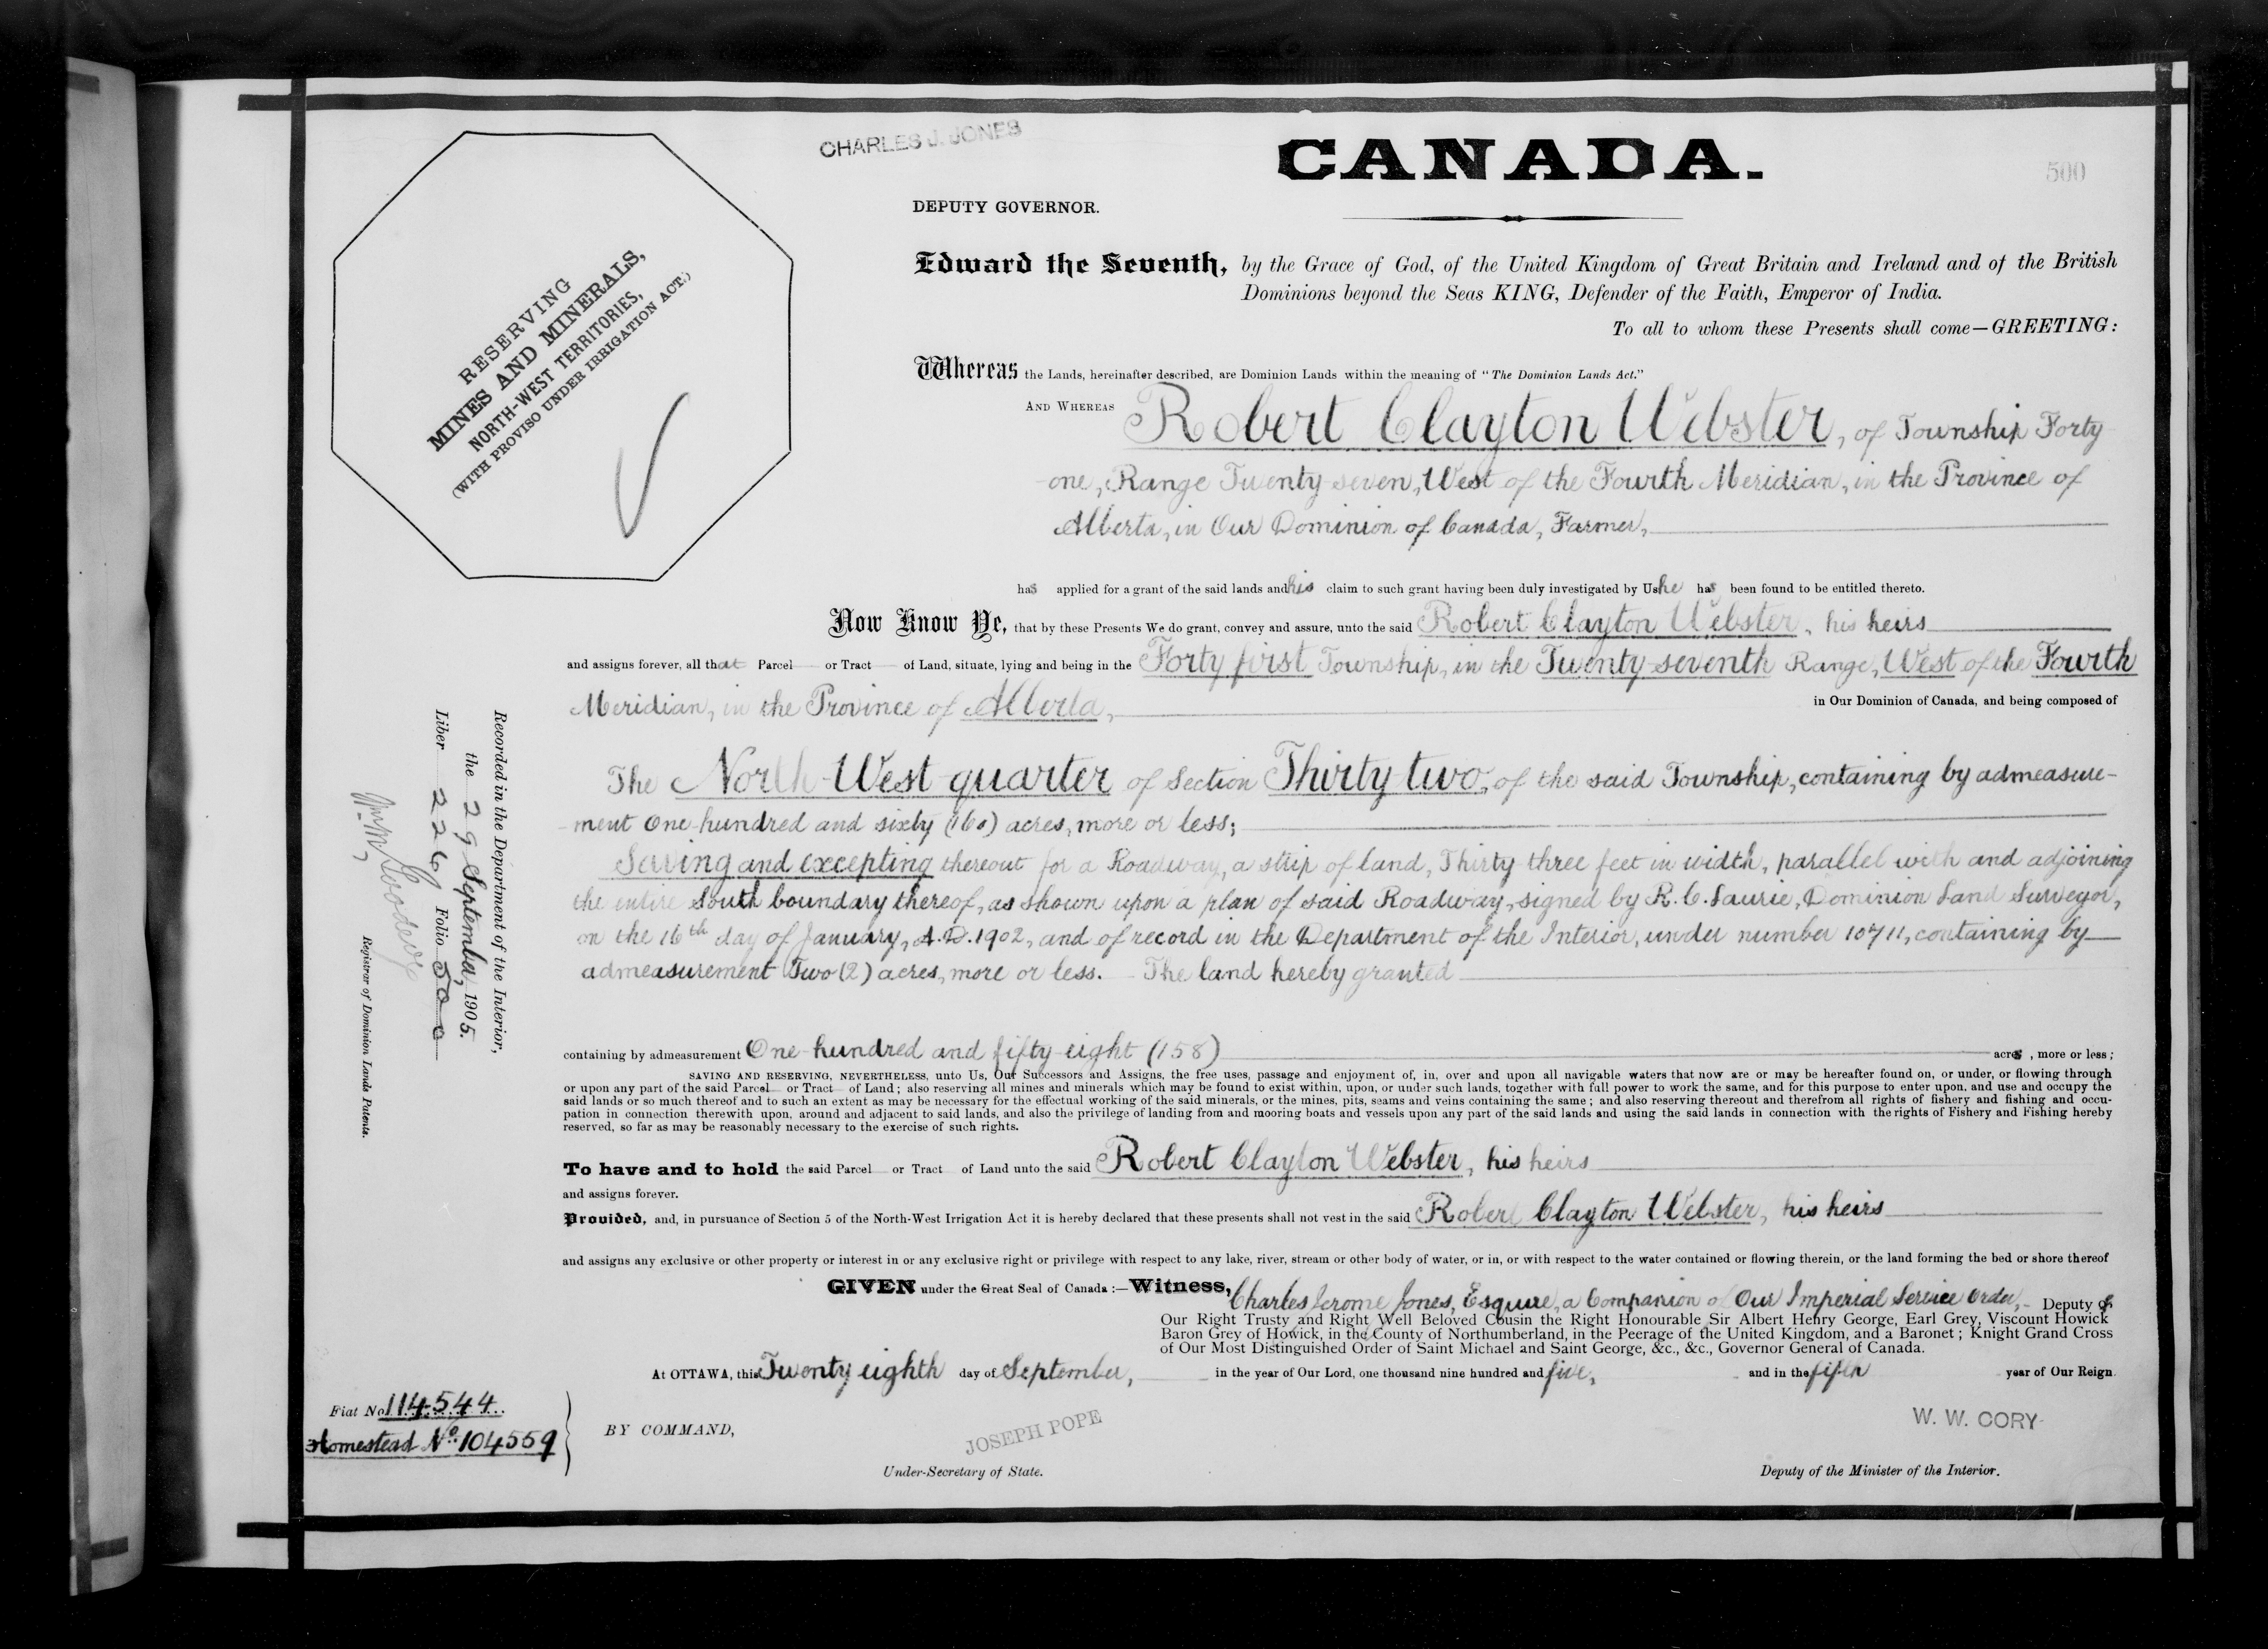 CHARLES J. JONES
CANADA.
500
DEPUTY GOVERNOR.
RESERVING
MINES AND MINERALS,
NORTH-WEST TERRITORIES,
(WITH PROVISO UNDER IRRIGATION ACT.)
Edward the Seventh, by the Grace of God, of the United Kingdom of Great Britain and Ireland and of the British
Dominions beyond the Seas KING, Defender of the Faith, Emperor of India.
To all to whom these Presents shall come—GREETING:
Whereas the Lands, hereinafter described, are Dominion Lands within the meaning of "The Dominion Lands Act."
AND WHEREAS Robert Clayton Webster, of Township Forty
-one, Range Twenty seven, West of the Fourth Meridian, in the Province of
Alberta, in Our Dominion of Canada, Farmer,
has applied for a grant of the said lands and his claim to such grant having been duly investigated by Us he has been found to be entitled thereto.
Now Know Ye, that by these Presents We do grant, convey and assure, unto the said Robert Clayton Webster, his heirs
and assigns forever, all that Parcel or Tract of Land, situate, lying and being in the Forty first Township, in the Twenty-seventh Range, West of the Fourth
Meridian, in the Province of Alberta, in Our Dominion of Canada, and being composed of
The North-West quarter of Section Thirty-two, of the said Township, containing by admeasure-
-ment One hundred and sixty (160) acres, more or less;
Saving and excepting thereout for a Roadway, a strip of land, Thirty-three feet in width, parallel with and adjoining
the entire South boundary thereof, as shown upon a plan of said Roadway, signed by R. C. Laurie, Dominion Land Surveyor,
on the 16th day of January, A.D. 1902, and of record in the Department of the Interior, under number 10711, containing by
admeasurement Two (2) acres, more or less. - The land hereby granted
containing by admeasurement One hundred and fifty-eight (158) acres, more or less;
SAVING AND RESERVING, NEVERTHELESS, unto Us, Our Successors and Assigns, the free uses, passage and enjoyment of, in, over and upon all navigable waters that now are or may be hereafter found on, or under, or flowing through
or upon any part of the said Parcel or Tract of Land; also reserving all mines and minerals which may be found to exist within, upon, or under such lands, together with full power to work the same, and for this purpose to enter upon, and use and occupy the
said lands or so much thereof and to such an extent as may be necessary for the effectual working of the said minerals, or the mines, pits, seams and veins containing the same; and also reserving thereout and therefrom all rights of fishery and fishing and occu-
pation in connection therewith upon, around and adjacent to said lands, and also the privilege of landing from and mooring boats and vessels upon any part of the said lands and using the said lands in connection with the rights of Fishery and Fishing hereby
reserved, so far as may be reasonably necessary to the exercise of such rights.
To have and to hold the said Parcel or Tract of Land unto the said Robert Clayton Webster, his heirs
and assigns forever.
Provided, and, in pursuance of Section 5 of the North-West Irrigation Act it is hereby declared that these presents shall not vest in the said Robert Clayton Webster, his heirs
and assigns any exclusive or other property or interest in or any exclusive right or privilege with respect to any lake, river, stream or other body of water, or in, or with respect to the water contained or flowing therein, or the land forming the bed or shore thereof
GIVEN under the Great Seal of Canada:—Witness, Charles Jerome Jones, Esquire, a Companion of Our Imperial Service Order, Deputy of
Our Right Trusty and Right Well Beloved Cousin the Right Honourable Sir Albert Henry George, Earl Grey, Viscount Howick
Baron Grey of Howick, in the County of Northumberland, in the Peerage of the United Kingdom, and a Baronet; Knight Grand Cross
of Our Most Distinguished Order of Saint Michael and Saint George, &c., &c., Governor General of Canada.
At OTTAWA, this Twenty eighth day of September, in the year of Our Lord, one thousand nine hundred and five, and in the fifth year of Our Reign.
BY COMMAND,
JOSEPH POPE
Under-Secretary of State.
W. W. CORY
Deputy of the Minister of the Interior.
Fiat No 114544
Homestead No. 104559
Recorded in the Department of the Interior,
the 29 September, 1905.
Liber 226 Folio 500
Registrar of Dominion Lands Patents.